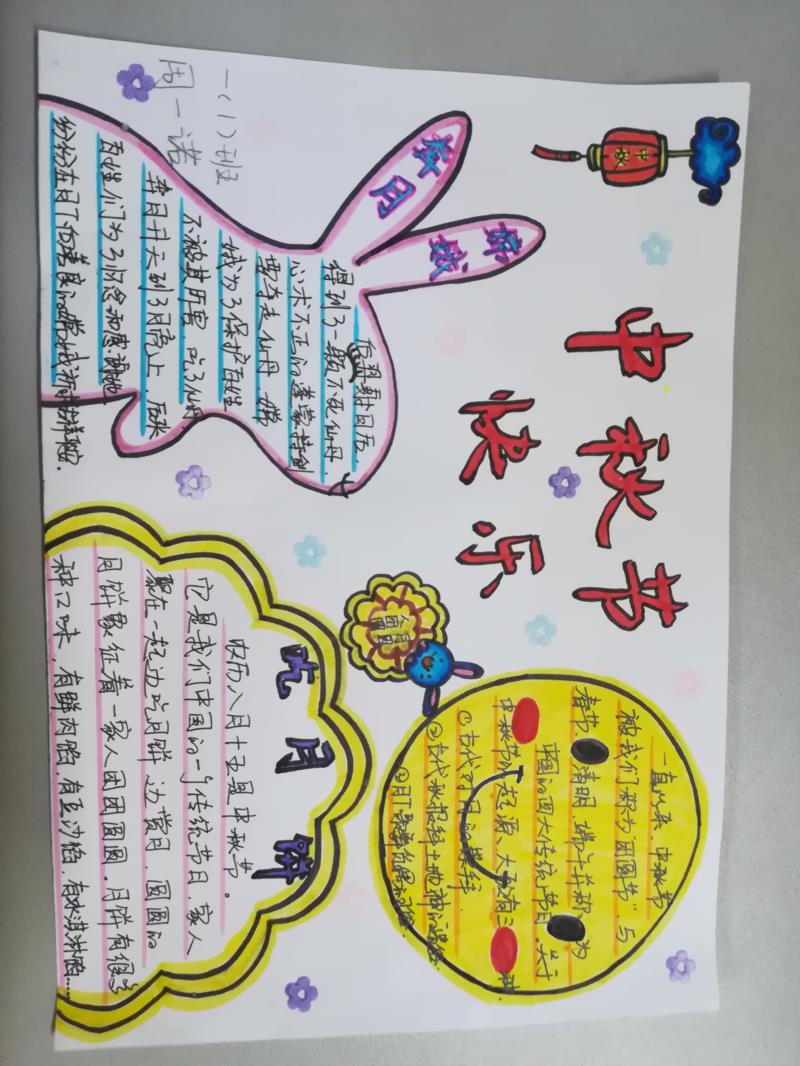 中秋
中秋节
快乐
嫦娥
奔月
一(1)班
周一诺
后羿射日后，
得到了一颗不死仙丹，
心术不正的逢蒙
要夺走仙丹，嫦
娥为了保护百姓
不被其所害，吃了仙丹
奔月升天到了月亮上。后来
百姓们为了怀念和感谢她
纷纷在月下向善良的嫦娥祈求
一直以来，中秋节
被我们称为“团圆节”，与
春节 清明 端午并称为
中国的四大传统节日。关于
中秋节的起源，大致有三种.
①古代对月的崇拜.
②古代秋报拜土地神的遗俗.
③月下歌舞觅偶的习俗.
吃月饼
农历八月十五是中秋节。
它是我们中国的一个传统节日，家人
聚在一起边吃月饼 边赏月，圆圆的
月饼象征着一家人团团圆圆。月饼有很多
种口味，有鲜肉馅，有豆沙馅，有冰淇淋馅……